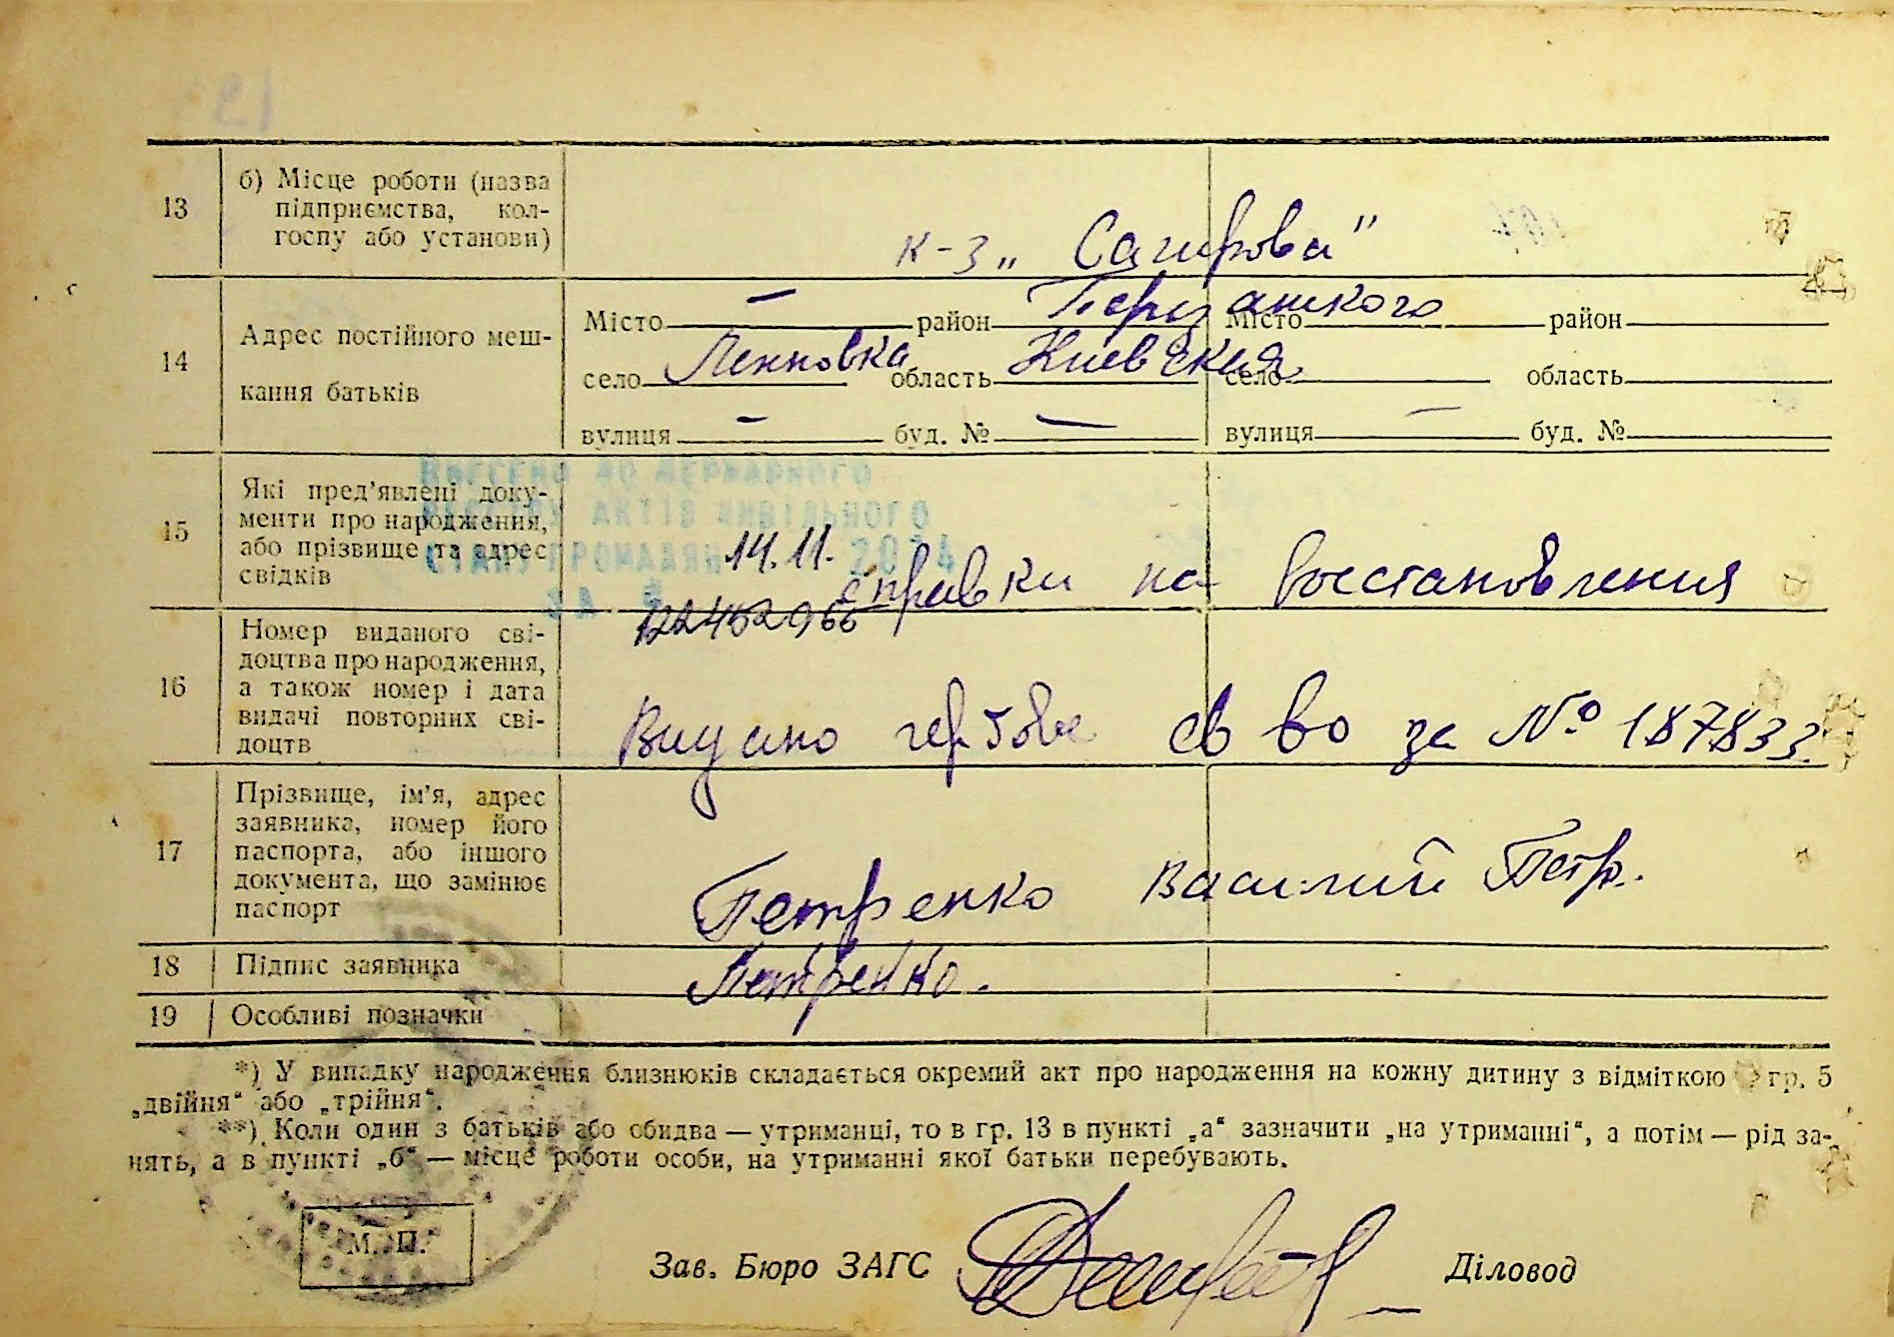 13
б) Місце роботи (назва
підприємства, кол-
госпу або установи)
к-з „ Сагирова"
14
Адрес постійного меш-
кання батьків
Місто — район
Місто район
село Ленковка область Киевская
село область
вулиця — буд. № —
вулиця — буд. №
Внесено до Державного
реєстру актів цивільного
стану громадян
14.11. 2014
за №
12245296
15
Які пред'явлені доку-
менти про народження,
або прізвище та адрес
свідків
справки на восстановления
16
Номер виданого сві-
доцтва про народження,
а також номер і дата
видачі повторних сві-
доцтв
Видано гербове св во за № 187833.
17
Прізвище, ім'я, адрес
заявника, номер його
паспорта, або іншого
документа, що замінює
паспорт
Петренко Василий Петр.
18
Підпис заявника
Петренко.
19
Особливі позначки
*) У випадку народження близнюків складається окремий акт про народження на кожну дитину з відміткою гр. 5
„двійня“ або „трійня“.
**) Коли один з батьків або обидва — утриманці, то в гр. 13 в пункті „а“ зазначити „на утриманні“, а потім — рід за-
нять, а в пункті „б“ — місце роботи особи, на утриманні якої батьки перебувають.
М. П.
Зав. Бюро ЗАГС
Діловод